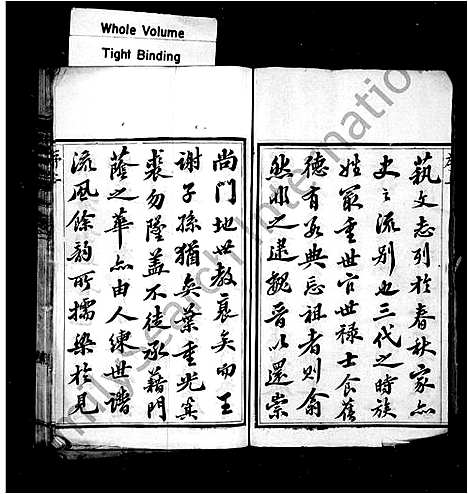 Whole Volume
Tight Binding
藝文志列於春秋家亦
史之流別也三代之時族
姓最重世官世祿士食舊
德有數典忘祖者則僉
然非之逮魏晉以還崇
尚門地世教衰矣而王
謝子孫猶奕葉重光箕
裘勿墜蓋不徒承藉門
蔭之華亦由人練世譜
流風餘韵所擩染於見